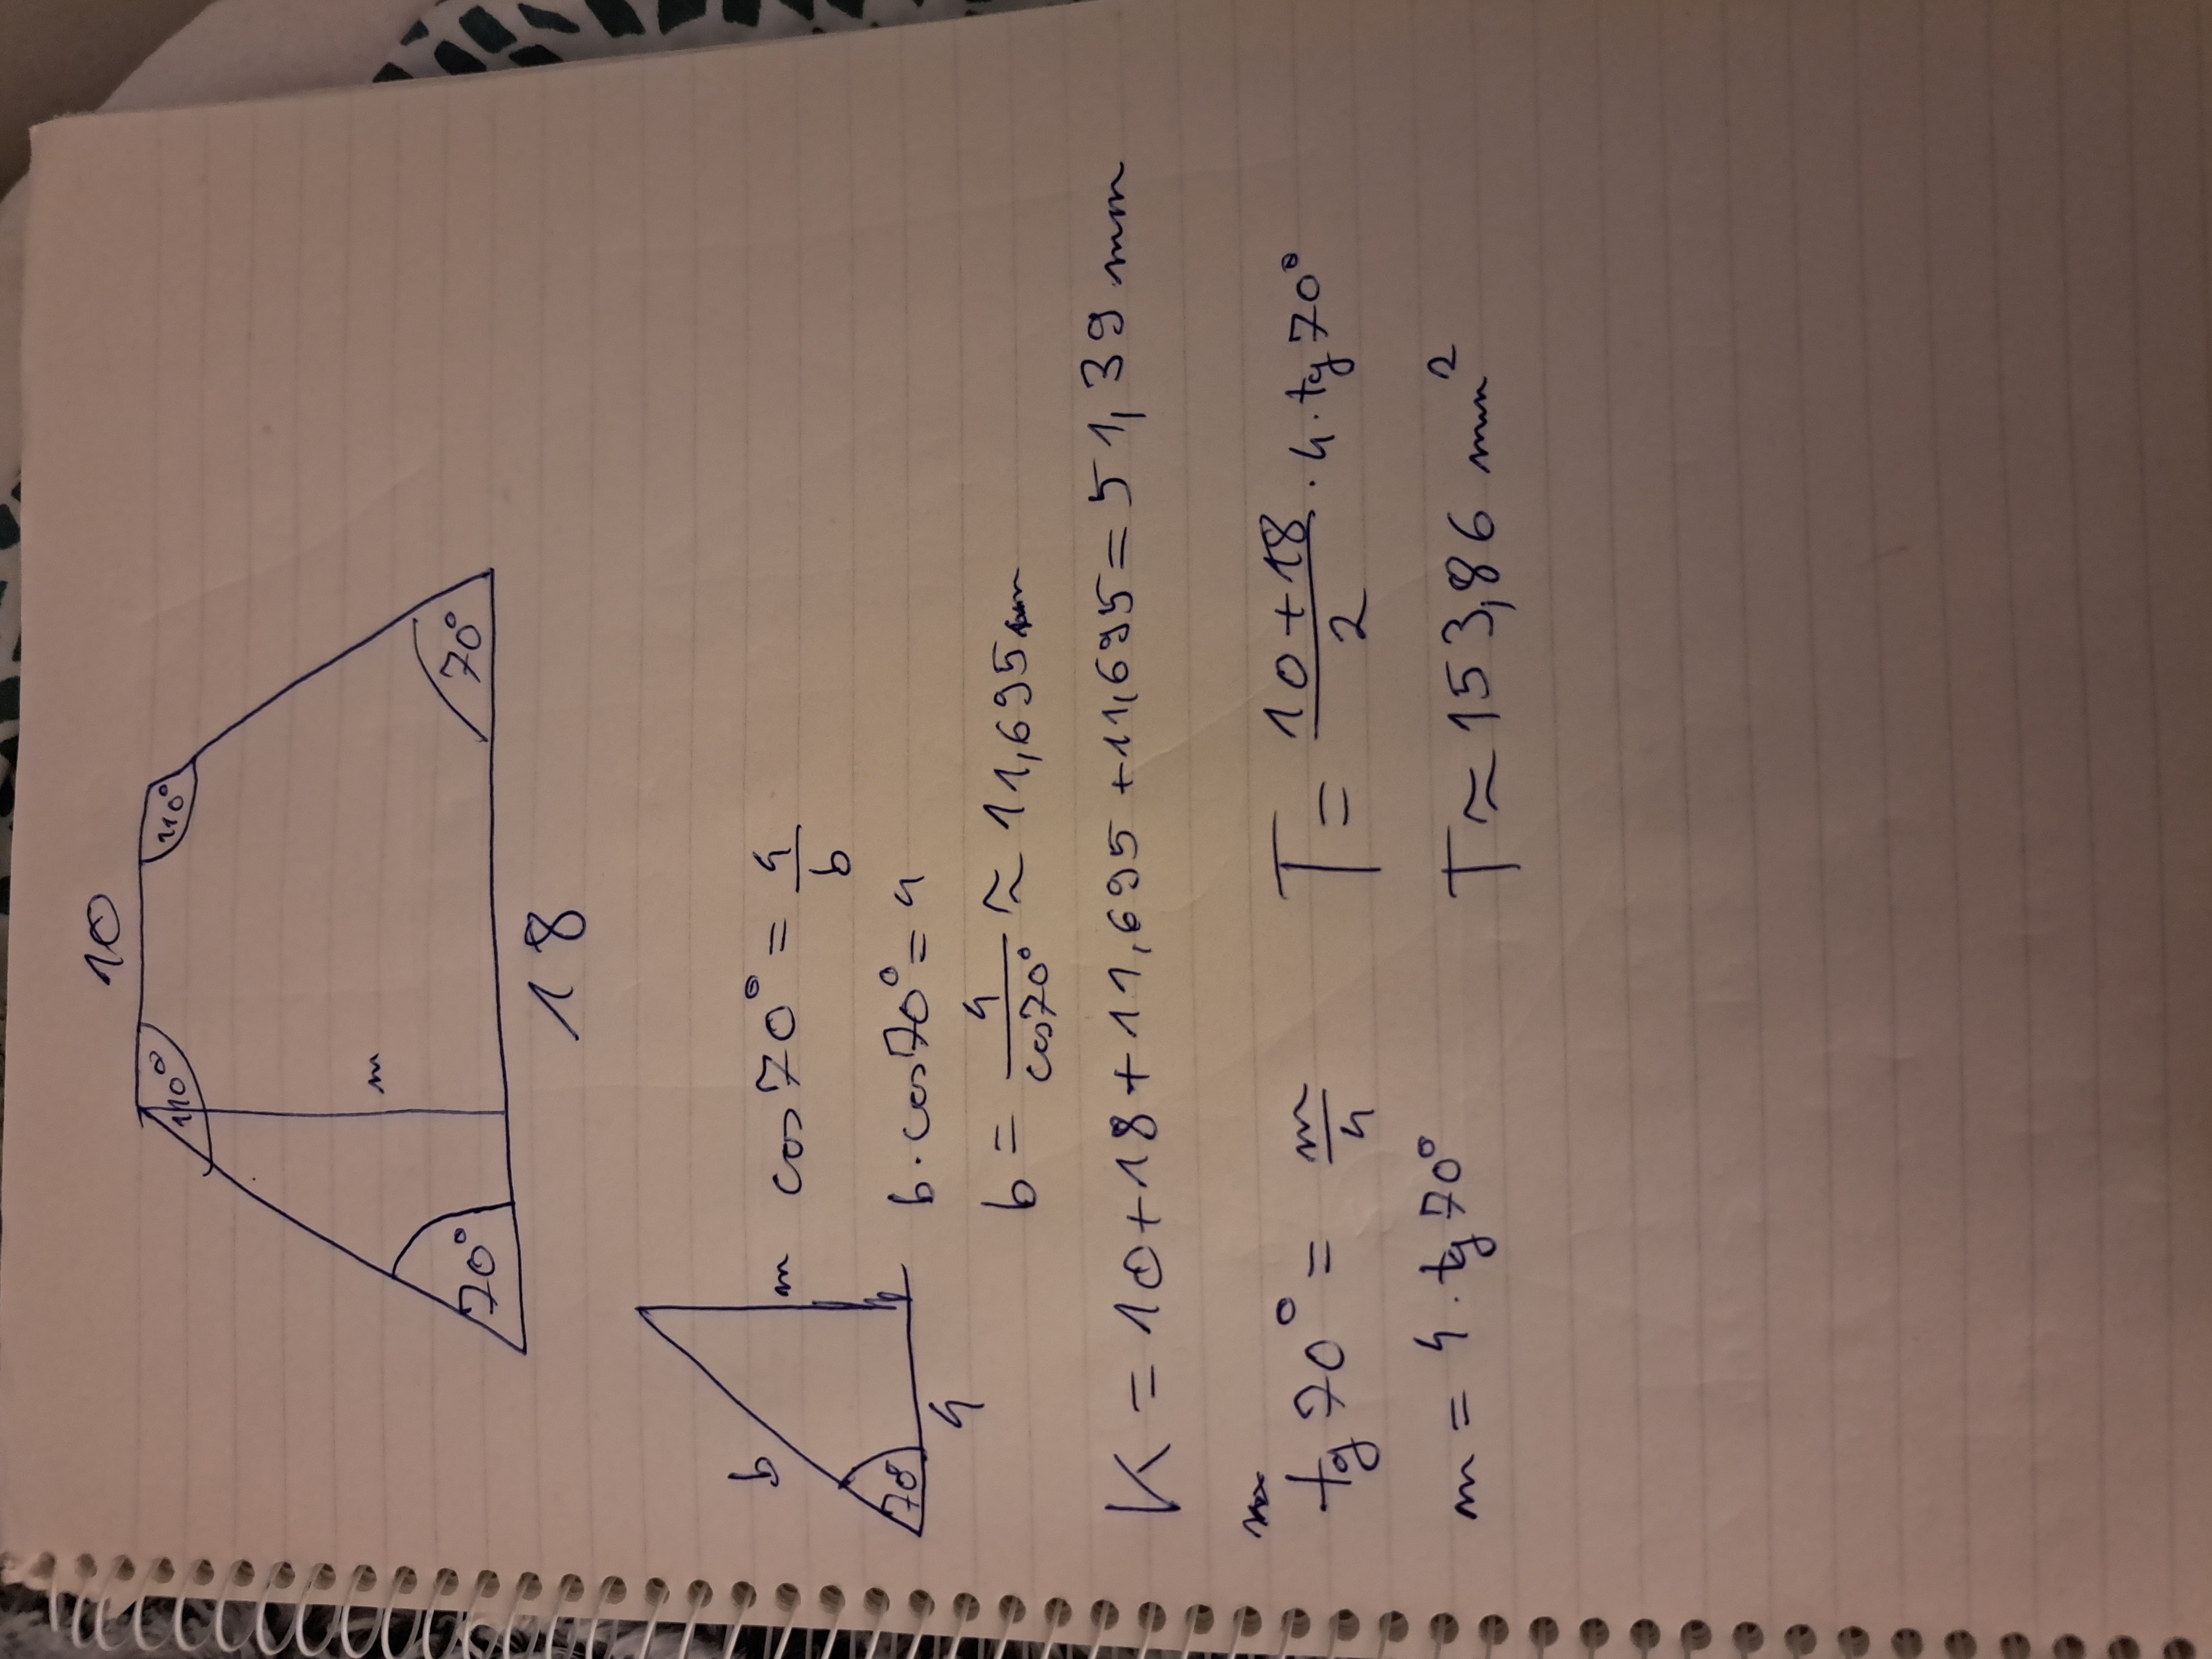 10
110° 110°
m
70° 70°
18
b m
70°
4
cos70° = 4/b
b · cos70° = 4
b = 4/cos70° ≈ 11,695 mm
K = 10 + 18 + 11,695 + 11,695 = 51,39 mm
tg 70° = m/4
T = (10 + 18)/2 · 4 · tg 70°
m = 4 · tg 70°
T ≈ 153,86 mm²